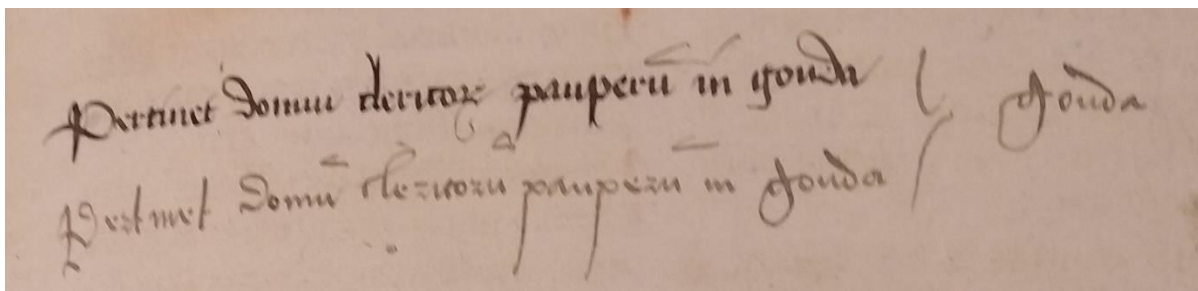 Pertinet domui clericoꝝ pauperū in gouda gouda
Pertinet domū clericorū pauperū in gouda